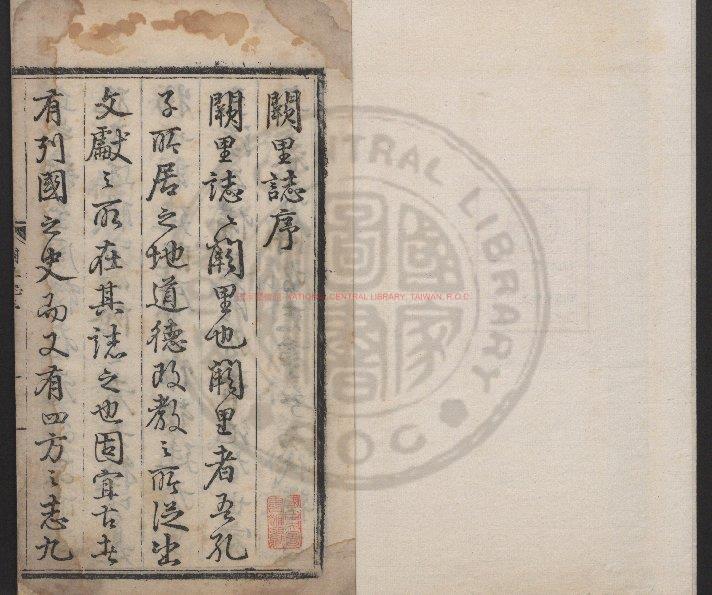 闕里誌序
闕里誌誌闕里也闕里者吾孔
子所居之地道德政教之所從出
文獻之所在其誌之也固宜古者
有列國之史而又有四方之志九
NATIONAL CENTRAL LIBRARY, TAIWAN, R.O.C.
CENTRAL LIBRARY
國家圖書
ROC